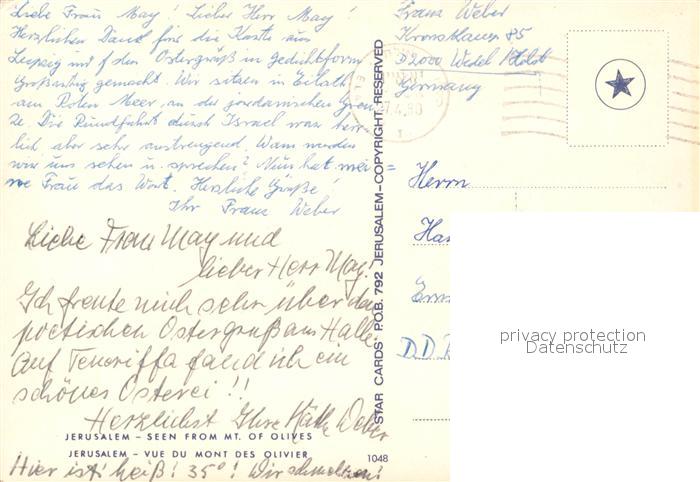 Liebe Frau May! Lieber Herr May!
Herzlichen Dank für die Karte aus
Leipzig und f den Ostergruß in Gedichtform
Großartig gemacht. Wir sitzen in Eilath
am Roten Meer, an der jordanischen Gren
ze. Die Rundfahrt durch Israel war herr
lich aber sehr anstrengend. Wann werden
wir uns sehen u. sprechen? Nun hat mei =
ne Frau das Wort. Herzliche Grüße!
Ihr Franz Weber
Liebe Frau May und
lieber Herr May.
Ich freute mich sehr über den
poetischen Ostergruß aus Halle.
Auf Teneriffa fand ich ein
schönes Osterei!!
Herzlichst Ihre Käthe Weber
JERUSALEM – SEEN FROM MT. OF OLIVES
JERUSALEM – VUE DU MONT DES OLIVIER
1048
Hier ist's heiß! 35°! Wir schmelzen!
STAR CARDS P.O.B. 792 JERUSALEM—COPYRIGHT RESERVED
Franz Weber
85
D 2000 Wedel / Holst
Germany
Herrn
privacy protection
Datenschutz